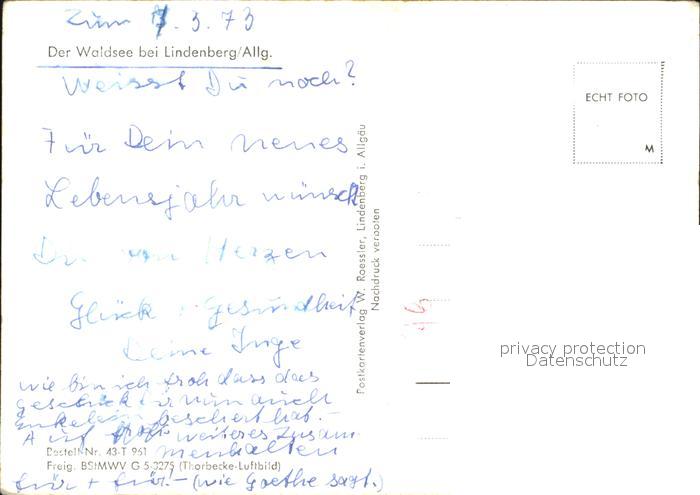 Zum 7.3.73
Der Waldsee bei Lindenberg/Allg.
Weisst Du noch?
Für Dein neues
Lebensjahr wünscht
Dir von Herzen
Glück + Gesundheit
Deine Inge
wie bin ich froh dass das
Geschick Dir nun auch
Enkelein beschert hat.-
Auf weiteres Zusam
menhalten
Bestell-Nr. 43-T 961
Freig. BStMWV G 5-3275 (Thorbecke-Luftbild)
für + für! - (wie Goethe sagt.)
Postkartenverlag W. Roessler, Lindenberg i. Allgäu
Nachdruck verboten
ECHT FOTO
M
privacy protection
Datenschutz